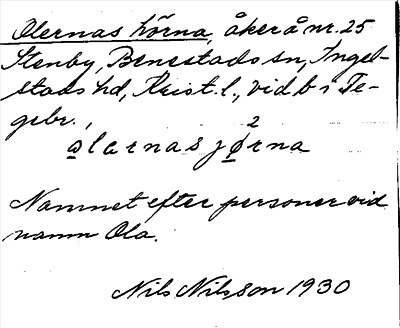 Olernas hörna, åker å nr. 25
Stenby, Benestads sn, Ingel-
stads hd, Krist. l., vid b i Te-
gebr.,
olarnas jø²rna
Namnet efter personer vid
namn Ola.
Nils Nilsson 1930